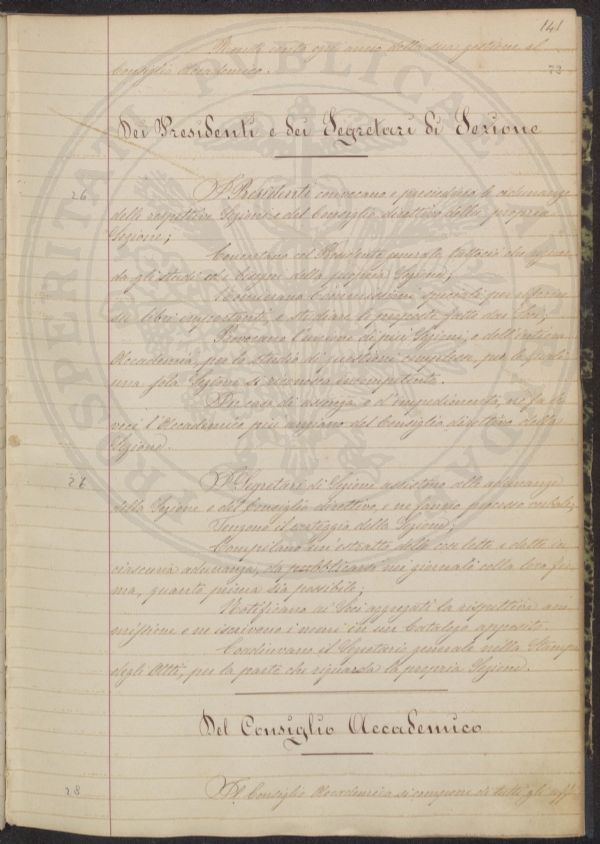 141
Rende conto ogni anno della sua gestione al
Consiglio Accademico.
73
Dei Presidenti e dei Segretari di Sezione
26
I Presidenti convocano e presiedono le adunanze
delle rispettive Sezioni e del Consiglio direttivo della propria
Sezione;
Concertano col Presidente generale tuttociò che riguar-
da gli studi ed i bisogni della propria Sezione;
Nominano Commissioni speciali per riferire
su libri importanti, e studiare le proposte fatte dai Soci;
Provocano l'unione di più Sezioni, e dell'intiera
Accademia, per lo studio di questioni complesse, per le quali
una sola Sezione si riconosca incompetente.
In caso di assenza e d'impedimento, ne fa le
veci l'Accademico più anziano del Consiglio direttivo della
Sezione.
27
I Segretari di Sezione assistono alle adunanze
della Sezione e del Consiglio direttivo, e ne fanno processo verbale;
Tengono il carteggio della Sezione;
Compilano un'estratto delle cose lette e dette in
ciascuna adunanza, da pubblicarsi nei giornali colla loro fir-
ma, quanto prima sia possibile;
Notificano ai Soci aggregati la rispettiva am-
missione e ne iscrivono i nomi in un Catalogo apposito.
Coadiuvano il Segretario generale nella Stampa
degli Atti, per la parte che riguarda la propria Sezione.
Del Consiglio Accademico
28
Il Consiglio Accademico si compone di tutti gli uffi-
PROSPERITATI PUBLICAE